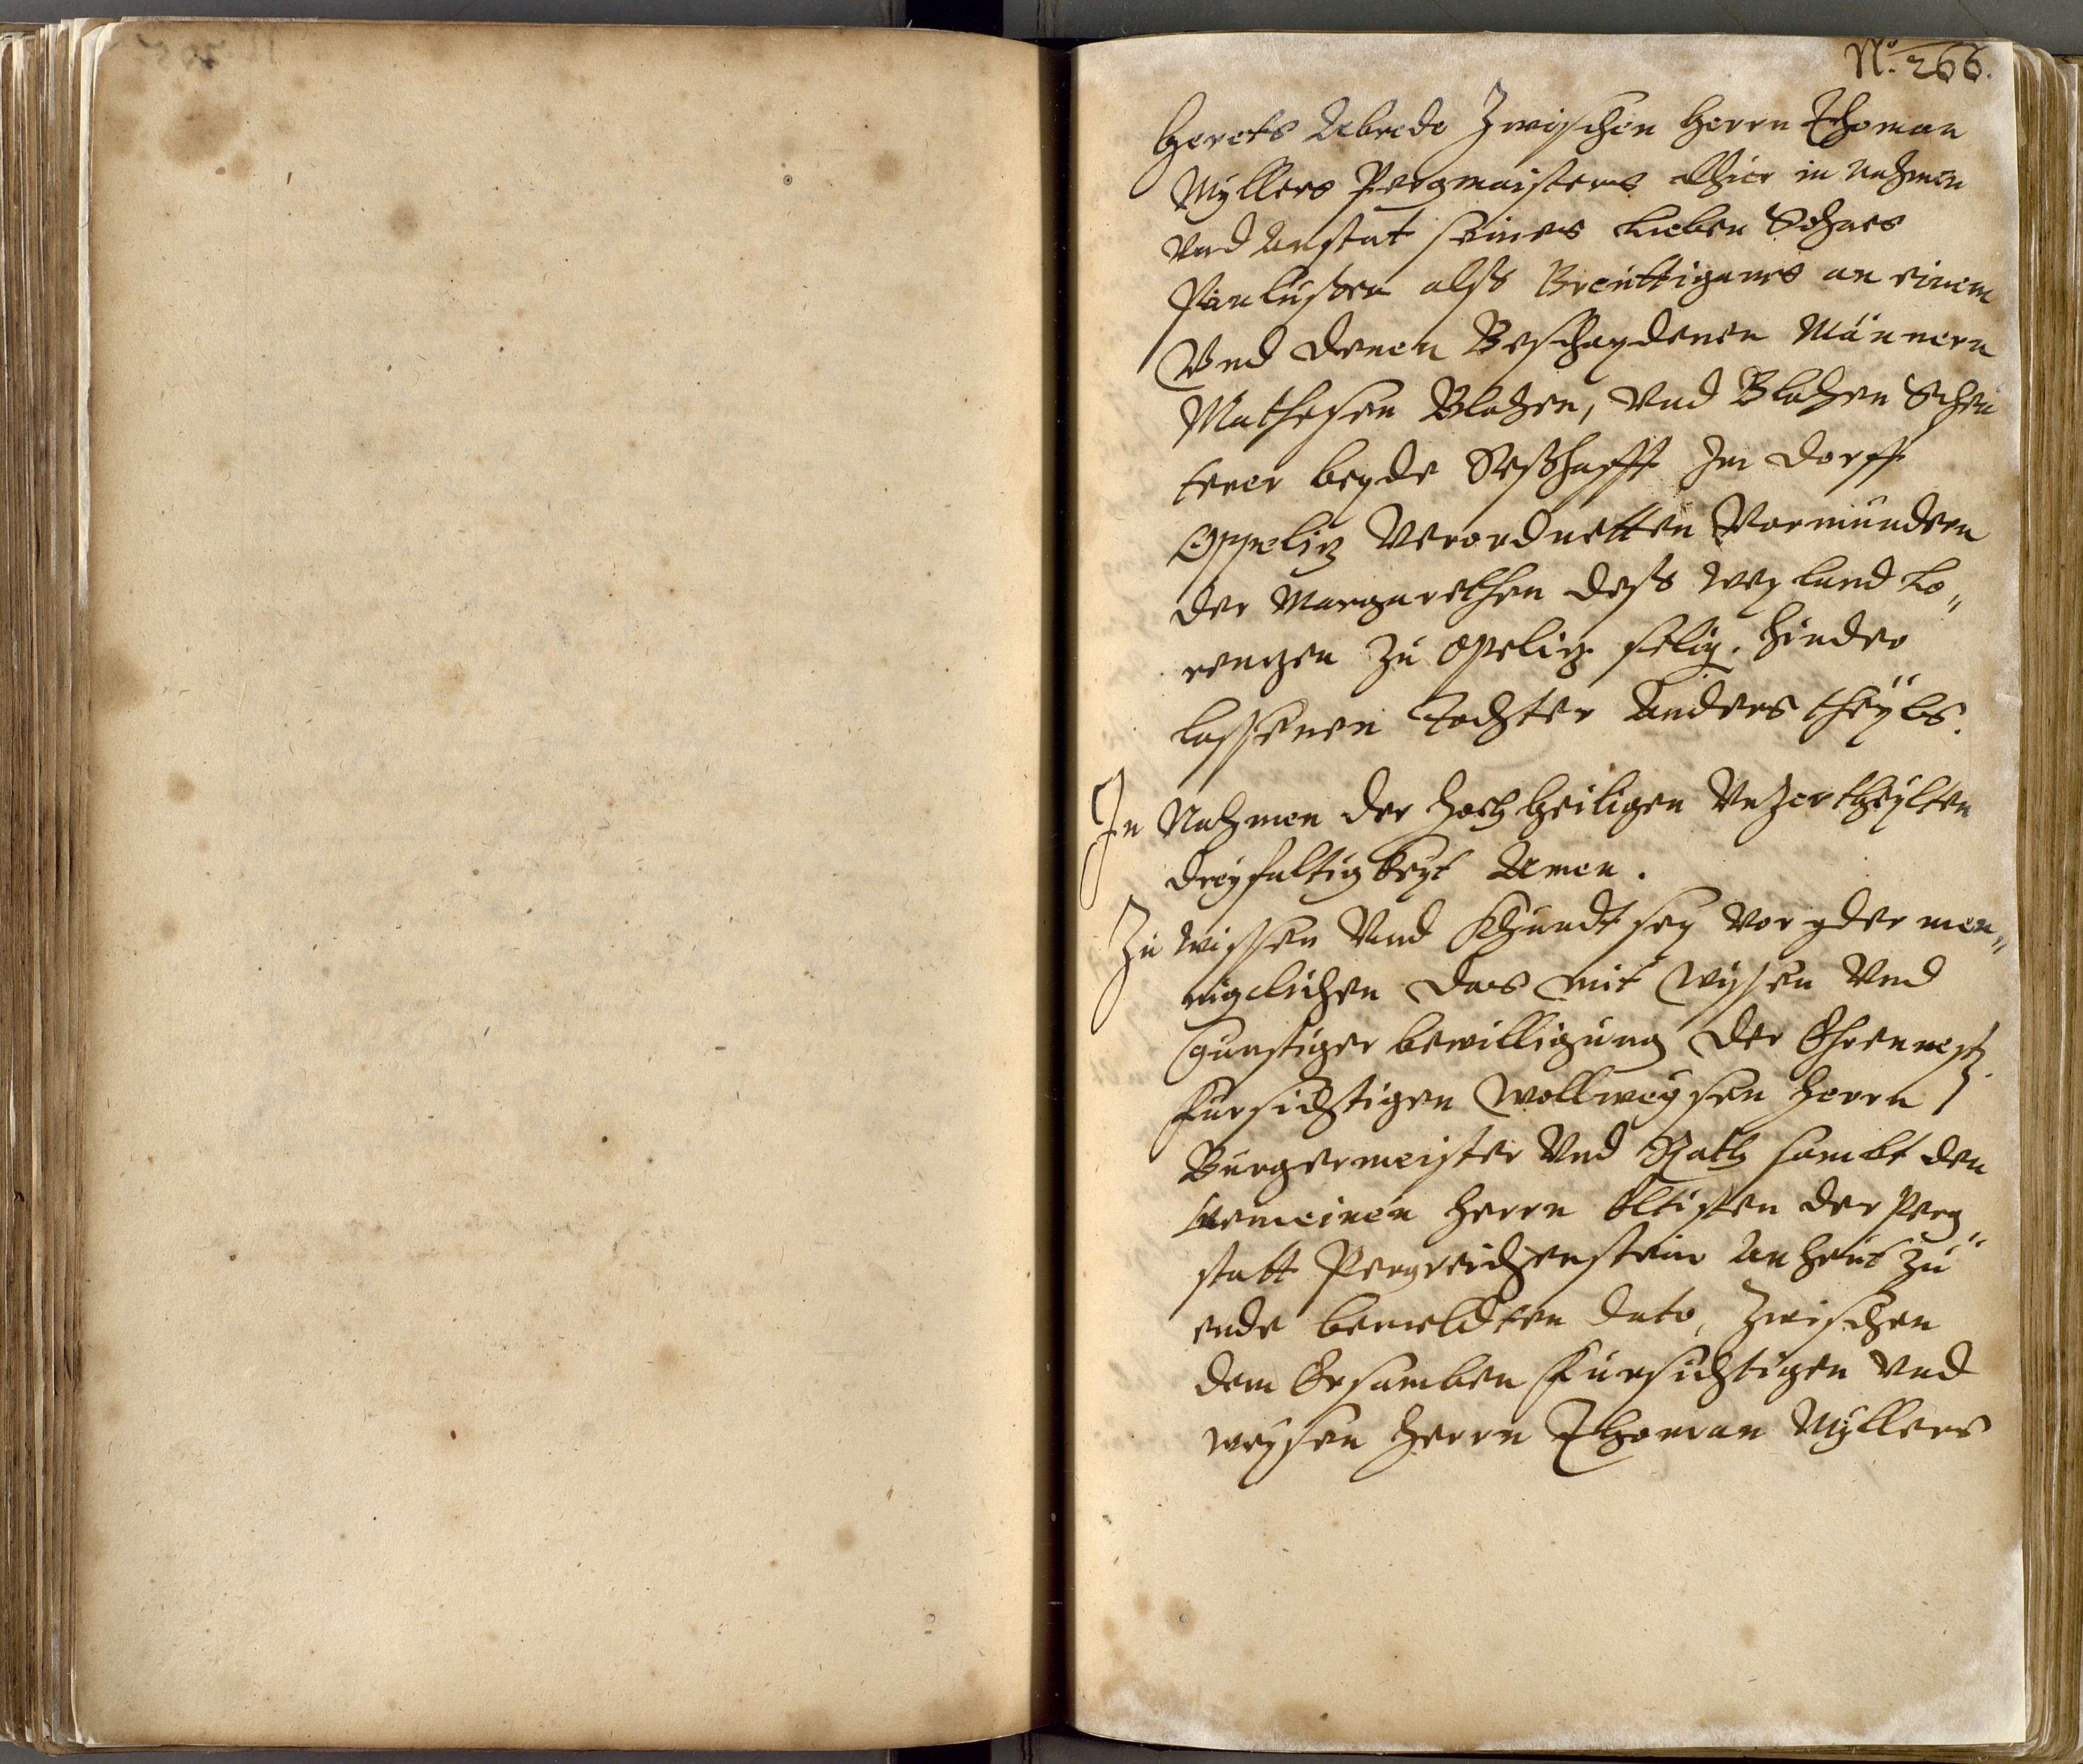 No. 266.
Heyrats Abrede Zwischen Herrn Thoman
Myllers Pergmaisters Alhier in Nahmen
Und Anstat seines Lieben Sohnes
Paulussen alss Breuttigams an einem
Und denen Beschaydenen Männern
Mathesen Blahen, Und Blahen Schu
sterer beyde Sesshafft Im dorff
Oppeliz Verordnetten Vormundern
der Margarethen dess weyland Lo„
renzen Zu Opeliz selig. hinder
lassenen Tochter Anders theyls.
In Nahmen der Hochheiligen Unzertheylten
dreyfaltigkeyt Amen.
Zu wissen Und Khundt sey Vor yder men„
niglichen das mit Wissen Und
gunstiger bewilligung der Ehrenvest
Fursichtigen Wollweysen Herrn
Burgermeister Und Rath sambt den
Gemeinen Herrn Eltisten der Perg„
statt Pergreichenstein An heut Zu
ende bemeldten dato, Zwischen
dem Ersamben Fursichtigen Und
weysen Herrn Thoman Myllers